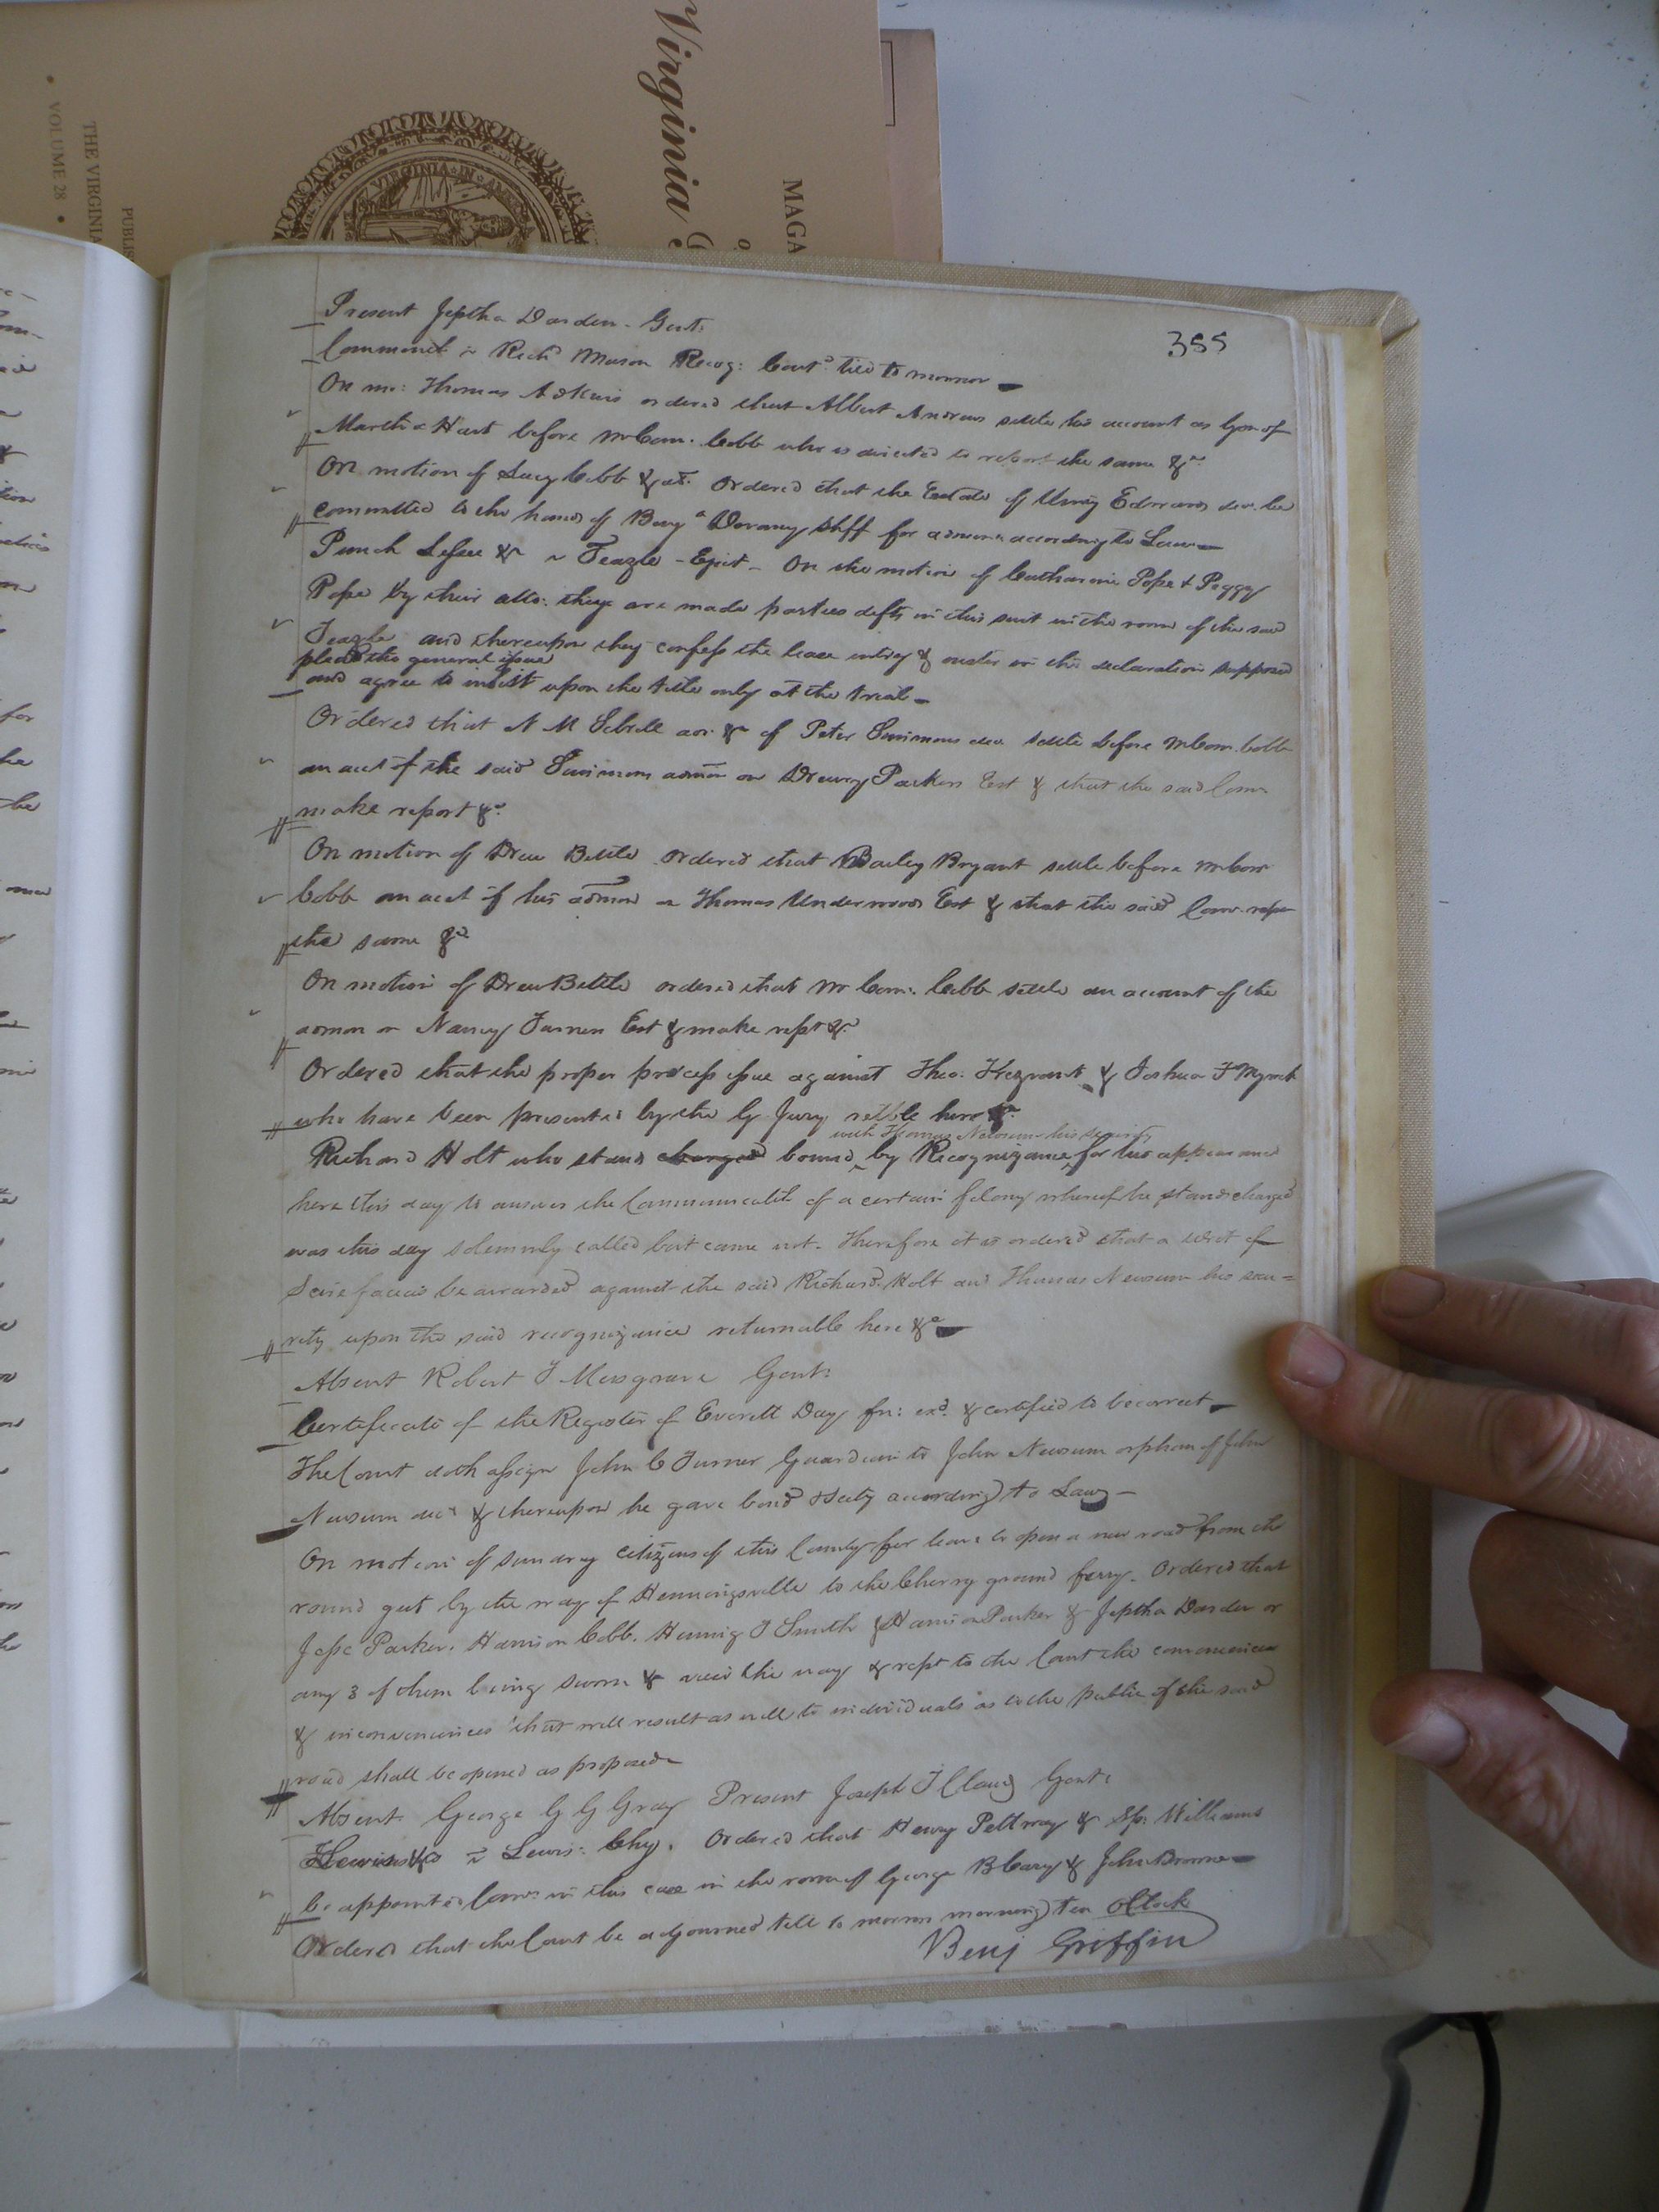 Virginia
MAGA
THE VIRGINIA
VOLUME 28
PUBLIS
VIRGINIA IN
355
Present Jeptha Darden Gent:
Commonwlt. v Richd Mason Recog: Contd. till to morrow
On mo: Thomas Adkins ordered that Albert Andrews settle his account as Gdn of
Martha Hart before Mr Com. Cobb who is directed to report the same &c
On motion of Lucy Cobb &c Ordered that the Estate of Edwards dec. be
committed to the hands of Benja Devany Shff for admn according to Law
Punch Lessee &c v Teazle - Eject - On the motion of Catharine Pope & Peggy
Pope by their atto: they are made parties defts in this suit in the room of the said
Teazle and thereupon they confess the lease entry & ouster in the declaration supposed
plead the general issue
and agree to insist upon the title only at the trial
Ordered that N M Sebrell adr. &c of Peter Simmons dec. settle before Mr Com. Cobb
an act of the said Simmons admon on Drewry Parkers Est & that the said Com
make report &c
On motion of Drew Bittle ordered that Bailey Bryant settle before Mr Com
Cobb an acct of his admon on Thomas Underwoods Est & that the said Com. repo
the same &c
On motion of Drew Bittle ordered that Mr Com. Cobb settle an account of the
admon on Nancy Turners Est & make rept &c
Ordered that the proper process issue against Theo. & Joshua
who have been presented by the G. Jury retble here &c
with Thomas Newsum his security
Richard Holt who stands charged bound by Recognizance for his appearance
here this day to answer the Commonwealth of a certain felony whereof he stands charged
was this day solemnly called but came not. Therefore it is ordered that a writ of
Scire facias be awarded against the said Richard Holt and Thomas Newsum his secu=
rity upon the said recognizance returnable here &c
Absent Robert T Musgrave Gent:
Certificate of the Register of Everett Day fn: exd. & certified to be correct
The Court doth assign John C Turner Guardian to John Newsum orphan of John
Newsum decd & thereupon he gave bond & Secty according to Law
On motion of sundry citizens of this County for leave to open a new road from the
round gut by the way of Henningsville to the Cherry ground ferry. Ordered that
Jesse Parker, Harrison Cobb, Hennig T Smith & Harrison Parker & Jeptha Darden or
any 3 of them being sworn & view the way & rept to the Court the conveniences
& inconveniences that will result as well to individuals as to the public if the said
road shall be opened as proposed
Absent George G G Gray Present Joseph T Claud Gent:
Lewis &c v Lewis: Chy. Ordered that Henry Pettway & Sp. Williams
be appointed Comrs in this case in the room of George B Cary & John Browne
Ordered that the Court be adjourned till to morrow morning ten oClock
Benj Griffin